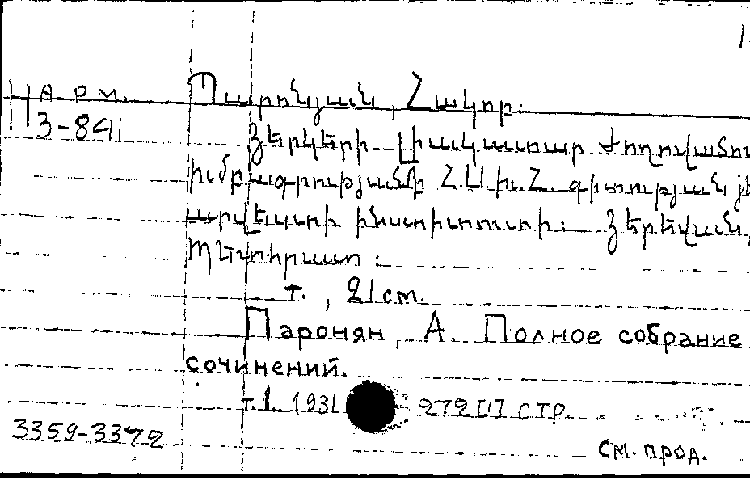 1
АРМ. Պարոնյան, Հակոբ:
3-84
Յերկերի Լիակատար Ժողովածու
Խմբագրությամբ Հ.Ս.Խ.Հ. գիտության յե
արվեստի ինստիտուտի: Յերեվան,
Պետհրատ:
т. , 21 см.
Паронян, А. Полное собрание
сочинений.
т.1. 1931 272 [1] стр.
3359-3372
См. прод.